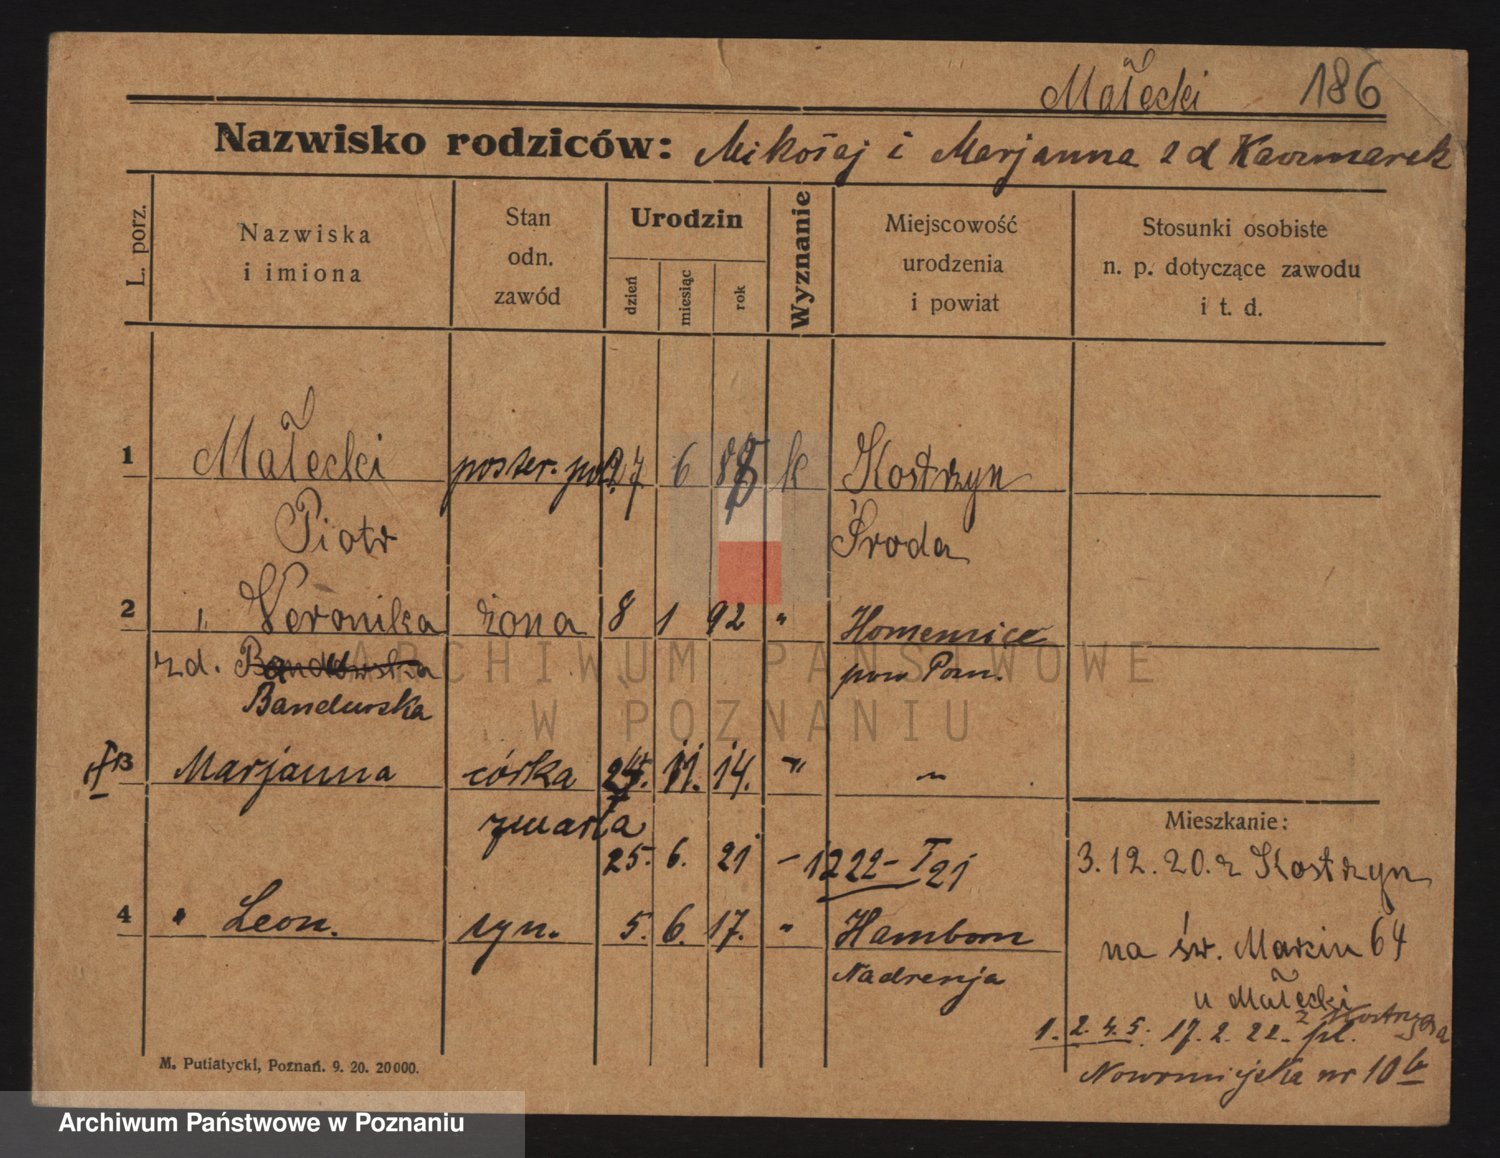 Małecki 186
Nazwisko rodziców: Mikołaj i Marjanna z d Kaczmarek
L. porz.
Nazwiska i imiona
Stan odn. zawód
Urodzin
dzień
miesiąc
rok
Wyznanie
Miejscowość urodzenia i powiat
Stosunki osobiste n. p. dotyczące zawodu i t. d.
1 Małecki poster. pol. 27 6 88 k Kostrzyn
Piotr Środa
2 " Weronika żona 8 1 92 " 
z d. Bandurska pow Pozn.
Bandurska
3 Marjanna córka 24. 11. 14. " "
zmarła
25. 6. 21 - 1222 - I 21
Mieszkanie:
3. 12. 20. z Kostrzyn
4 " Leon. syn. 5. 6. 17. " Hamborn
Nadrenja
na św. Marcin 64
u Małecki
1. 2. 4. 5. 17. 2. 22. z Kostrzyna
pl. Nowomiejska nr 10 b
M. Putiatycki, Poznań. 9. 20. 20000.
ARCHIWUM PAŃSTWOWE
W POZNANIU
Archiwum Państwowe w Poznaniu